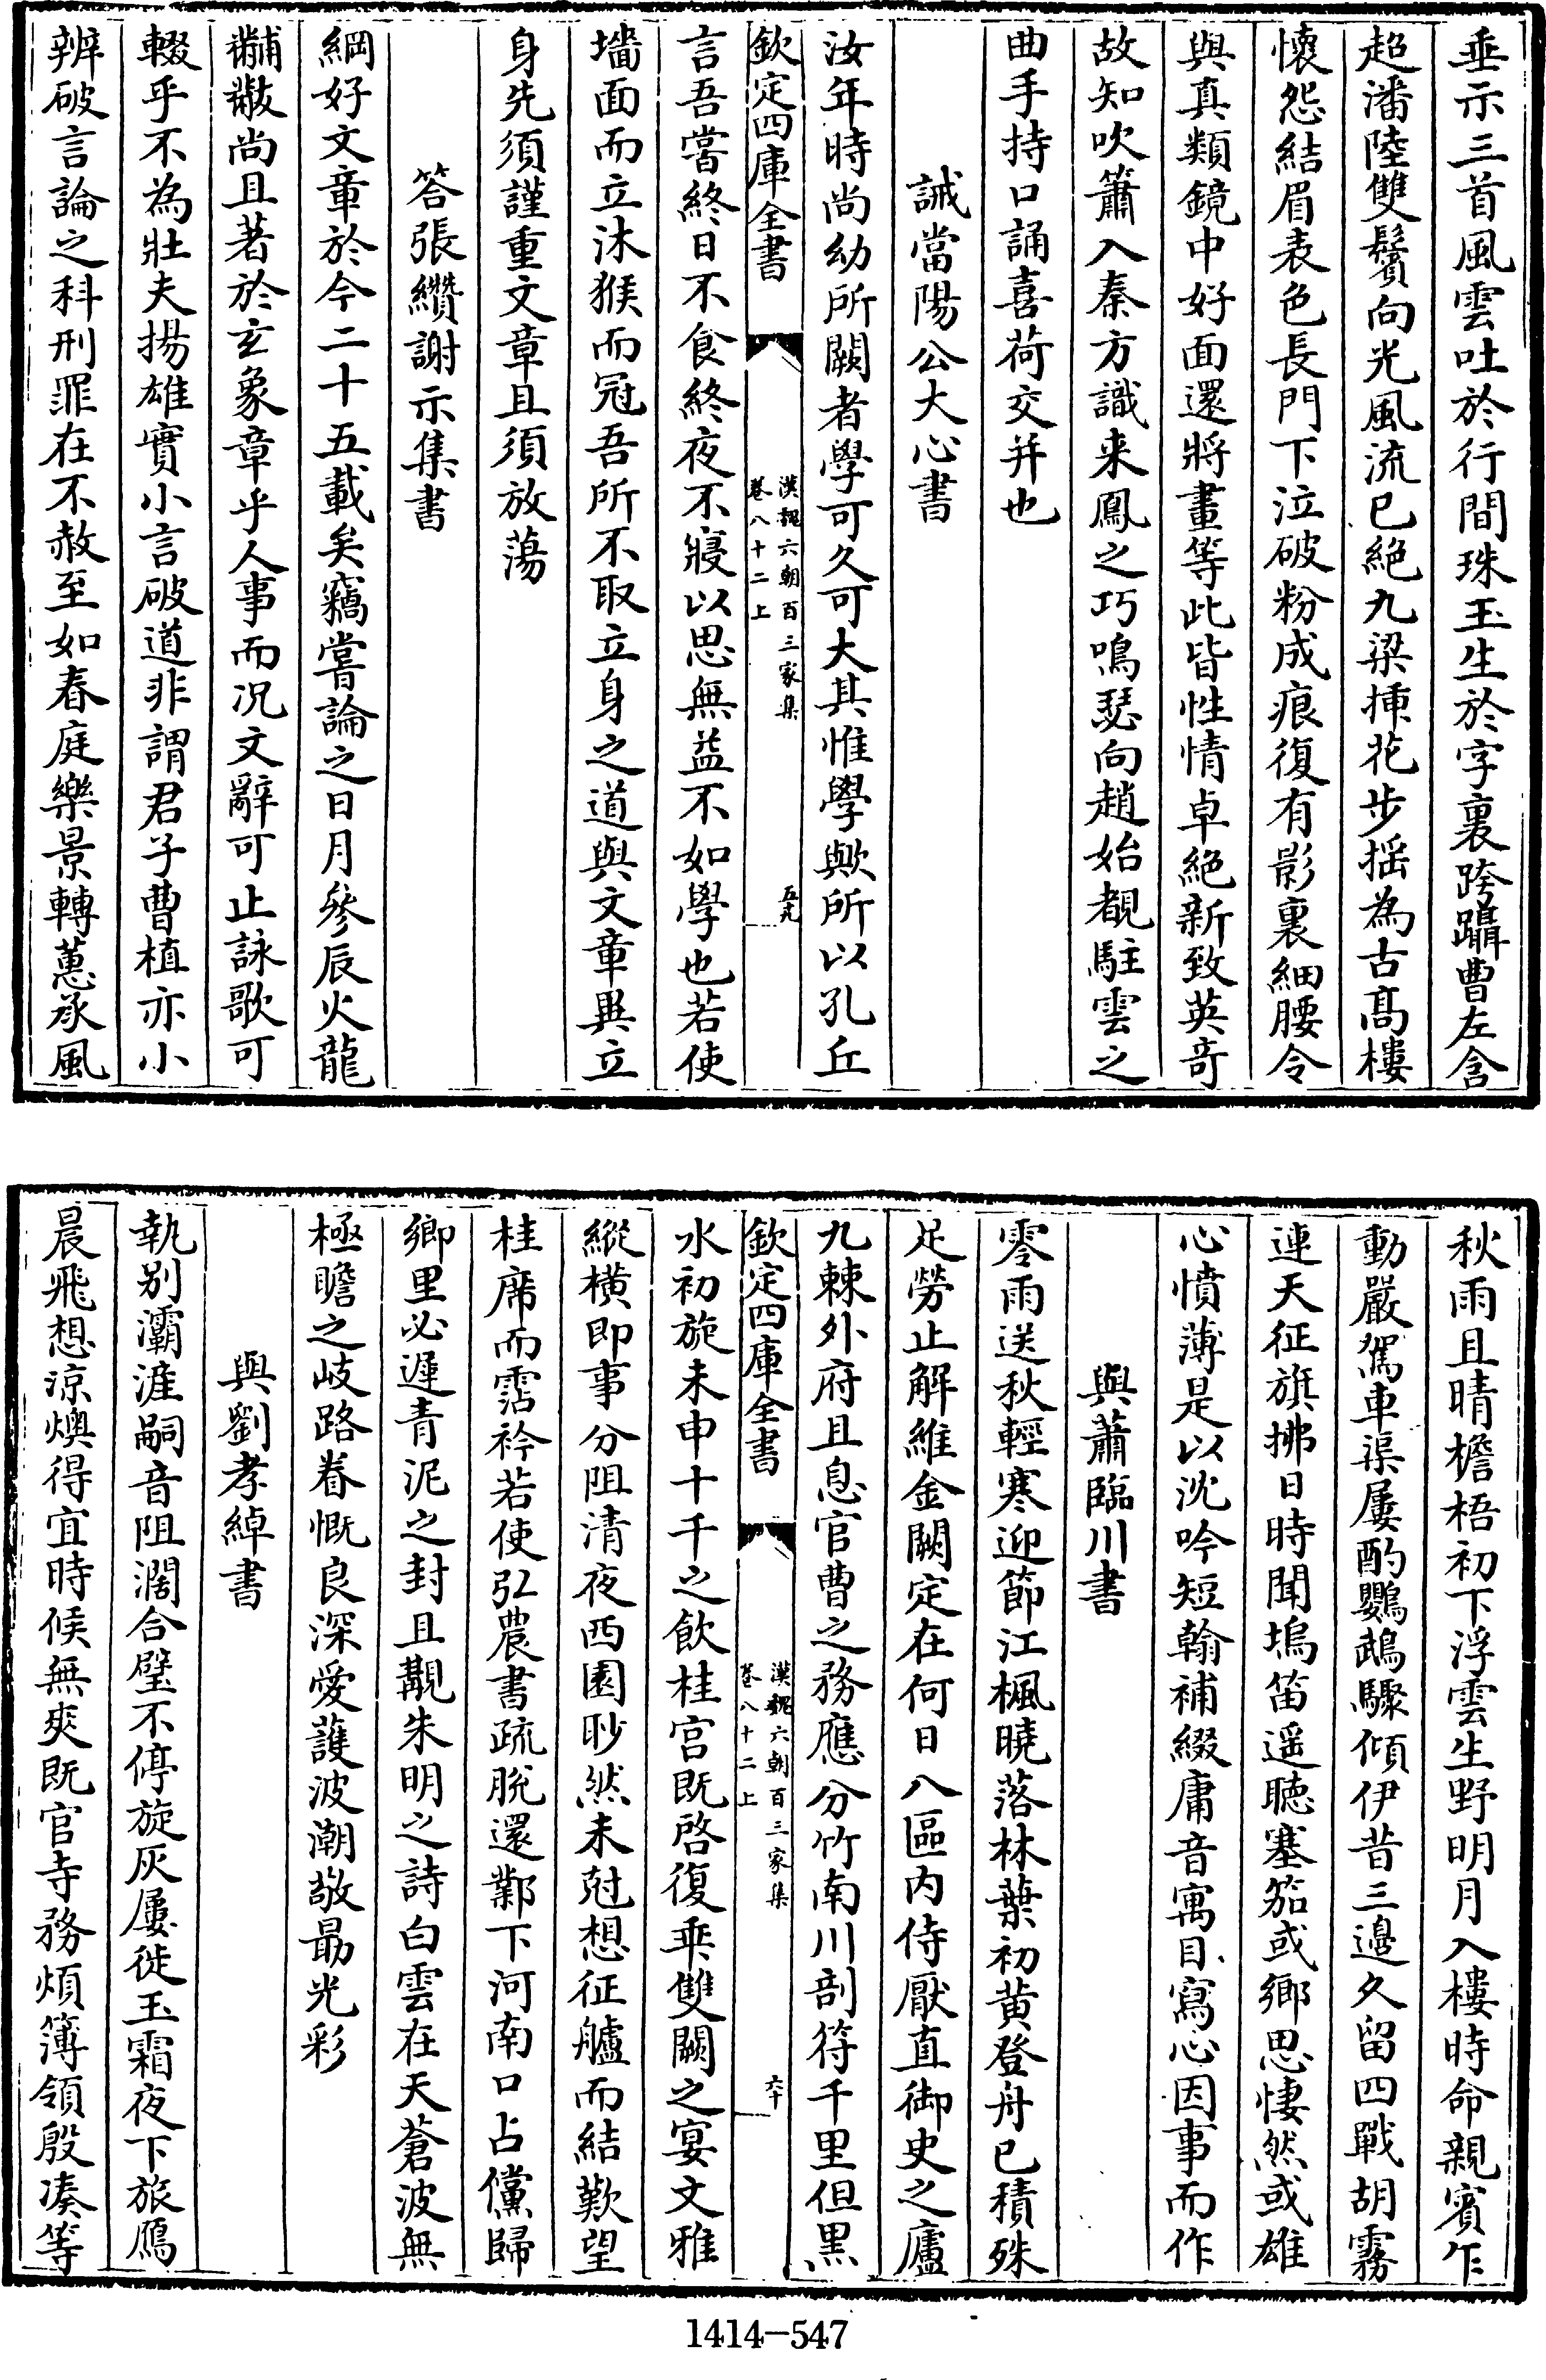 垂示三首風雲吐於行間珠玉生於字裏跨躡曹左含
超潘陸雙鬢向光風流已絕九梁揷花步揺為古髙樓
懷怨結眉表色長門下泣破粉成痕復有影裏細腰令
與真類鏡中好面還將畫等此皆性情卓絕新致英竒
故知吹簫入秦方識来鳳之巧鳴瑟向趙始覩駐雲之
曲手持口誦喜荷交并也
誡當陽公大心書
汝年時尚幼所闕者學可久可大其惟學歟所以孔丘
欽定四庫全書
漢魏六朝百三家集
卷八十二上
五九
言吾嘗終日不食終夜不寢以思無益不如學也若使
墻面而立沐猴而冠吾所不取立身之道與文章異立
身先須謹重文章且須放蕩
答張纘謝示集書
綱好文章於今二十五載矣竊嘗論之日月參辰火龍
黼黻尚且著於玄象章乎人事而况文辭可止詠歌可
輟乎不為壯夫揚雄實小言破道非謂君子曹植亦小
辨破言論之科刑罪在不赦至如春庭樂景轉蕙承風
秋雨且晴檐梧初下浮雲生野明月入樓時命親賓乍
動嚴駕車渠屢酌鸚鵡驟傾伊昔三邉久留四戰胡霧
連天征旗拂日時聞塢笛遥聴塞笳或鄉思悽然或雄
心憤薄是以沈吟短翰補綴庸音寓目寫心因事而作
與蕭臨川書
零雨送秋輕寒迎節江楓曉落林葉初黄登舟已積殊
足勞止解維金闕定在何日八區内侍厭直御史之廬
九棘外府且息官曹之務應分竹南川剖符千里但黒
欽定四庫全書
漢魏六朝百三家集
卷八十二上
六十
水初旋未申十千之飲桂宫既啓復乗雙闕之宴文雅
縱横即事分阻清夜西園眇然未尅想征艫而結歎望
桂席而霑衿若使弘農書疏脫還鄴下河南口占儻歸
鄉里必遲青泥之封且覯朱明之詩白雲在天蒼波無
極瞻之岐路眷慨良深愛護波潮敬朂光彩
與劉孝綽書
執别灞滻嗣音阻濶合璧不停旋灰屢徙玉霜夜下旅鴈
晨飛想涼燠得宜時候無爽既官寺務煩簿領殷凑等
1414-547